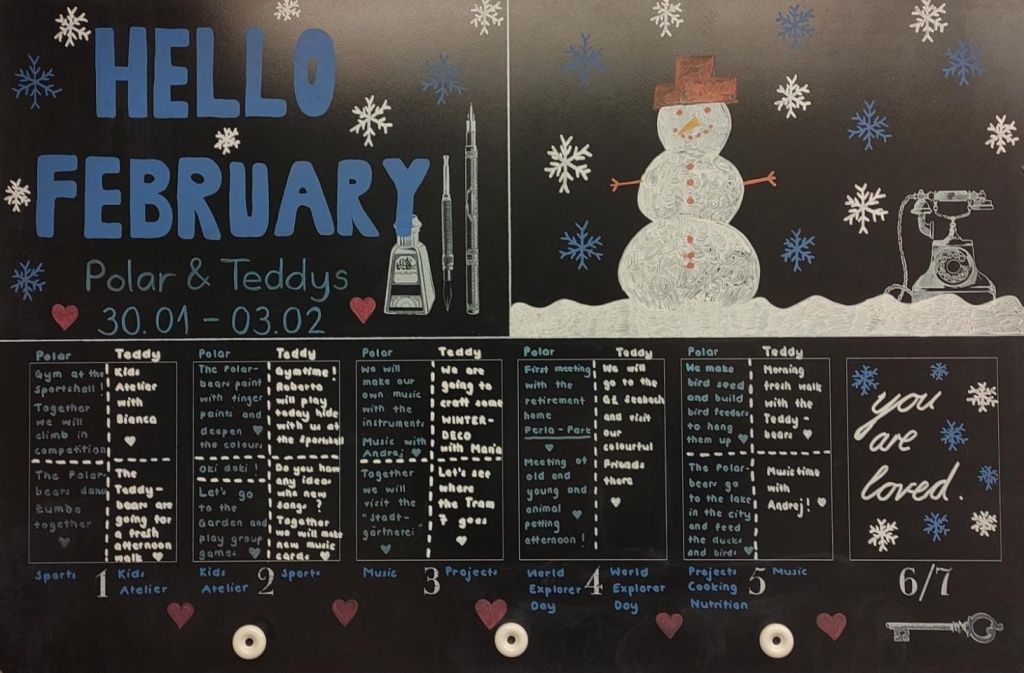 HELLO
FEBRUARY
Polar & Teddys
30.01 - 03.02
Polar
Gym at the
Sportshall!
Together
we will
climb in
competition
The Polar-
bears dans
žumba
together
Teddy
Kids
Atelier
with
Bianca
The
Teddy-
bear are
going for
a fresh
afternoon
walk
Sports
1
Kids
Atelier
Polar
The Polar-
bears paint
with finger
paints and
deepen
the colours
Oki doki!
Let's go
to the
Garden and
play group
games
Teddy
Gymtime!
Roberto
will play
today hide
with us at
the Sportshall
Do you have
any ideas
who new
songs?
Together
we will make
new music
cards
Kids
Atelier
2
Sports
Polar
We will
make our
own music
with the
instruments
Music with
Andrej
Together
we will
visit the
"Stadt-
gärtnerei"
Teddy
We are
going to
craft some
WINTER-
DECO
with Maria
Let's see
where
the Tram
7 goes
Music
3
Projects
Polar
First meeting
with the
retirement
home
Perla-Park
Meeting of
old and
young and
animal
petting
afternoon!
Teddy
We will
go to the
AZ Seebach
and visit
our
colourful
Friends
there
World
Explorer
Day
4
World
Explorer
Day
Polar
We make
bird seed
and build
bird feeders
to hang
them up
The Polar-
bears go
to the lake
in the city
and feed
the ducks
and birds
Teddy
Morning
fresh walk
with the
Teddy-
bears
Musictime
with
Andrej!
Projects
Cooking
Nutrition
5
Music
you
are
loved.
6/7